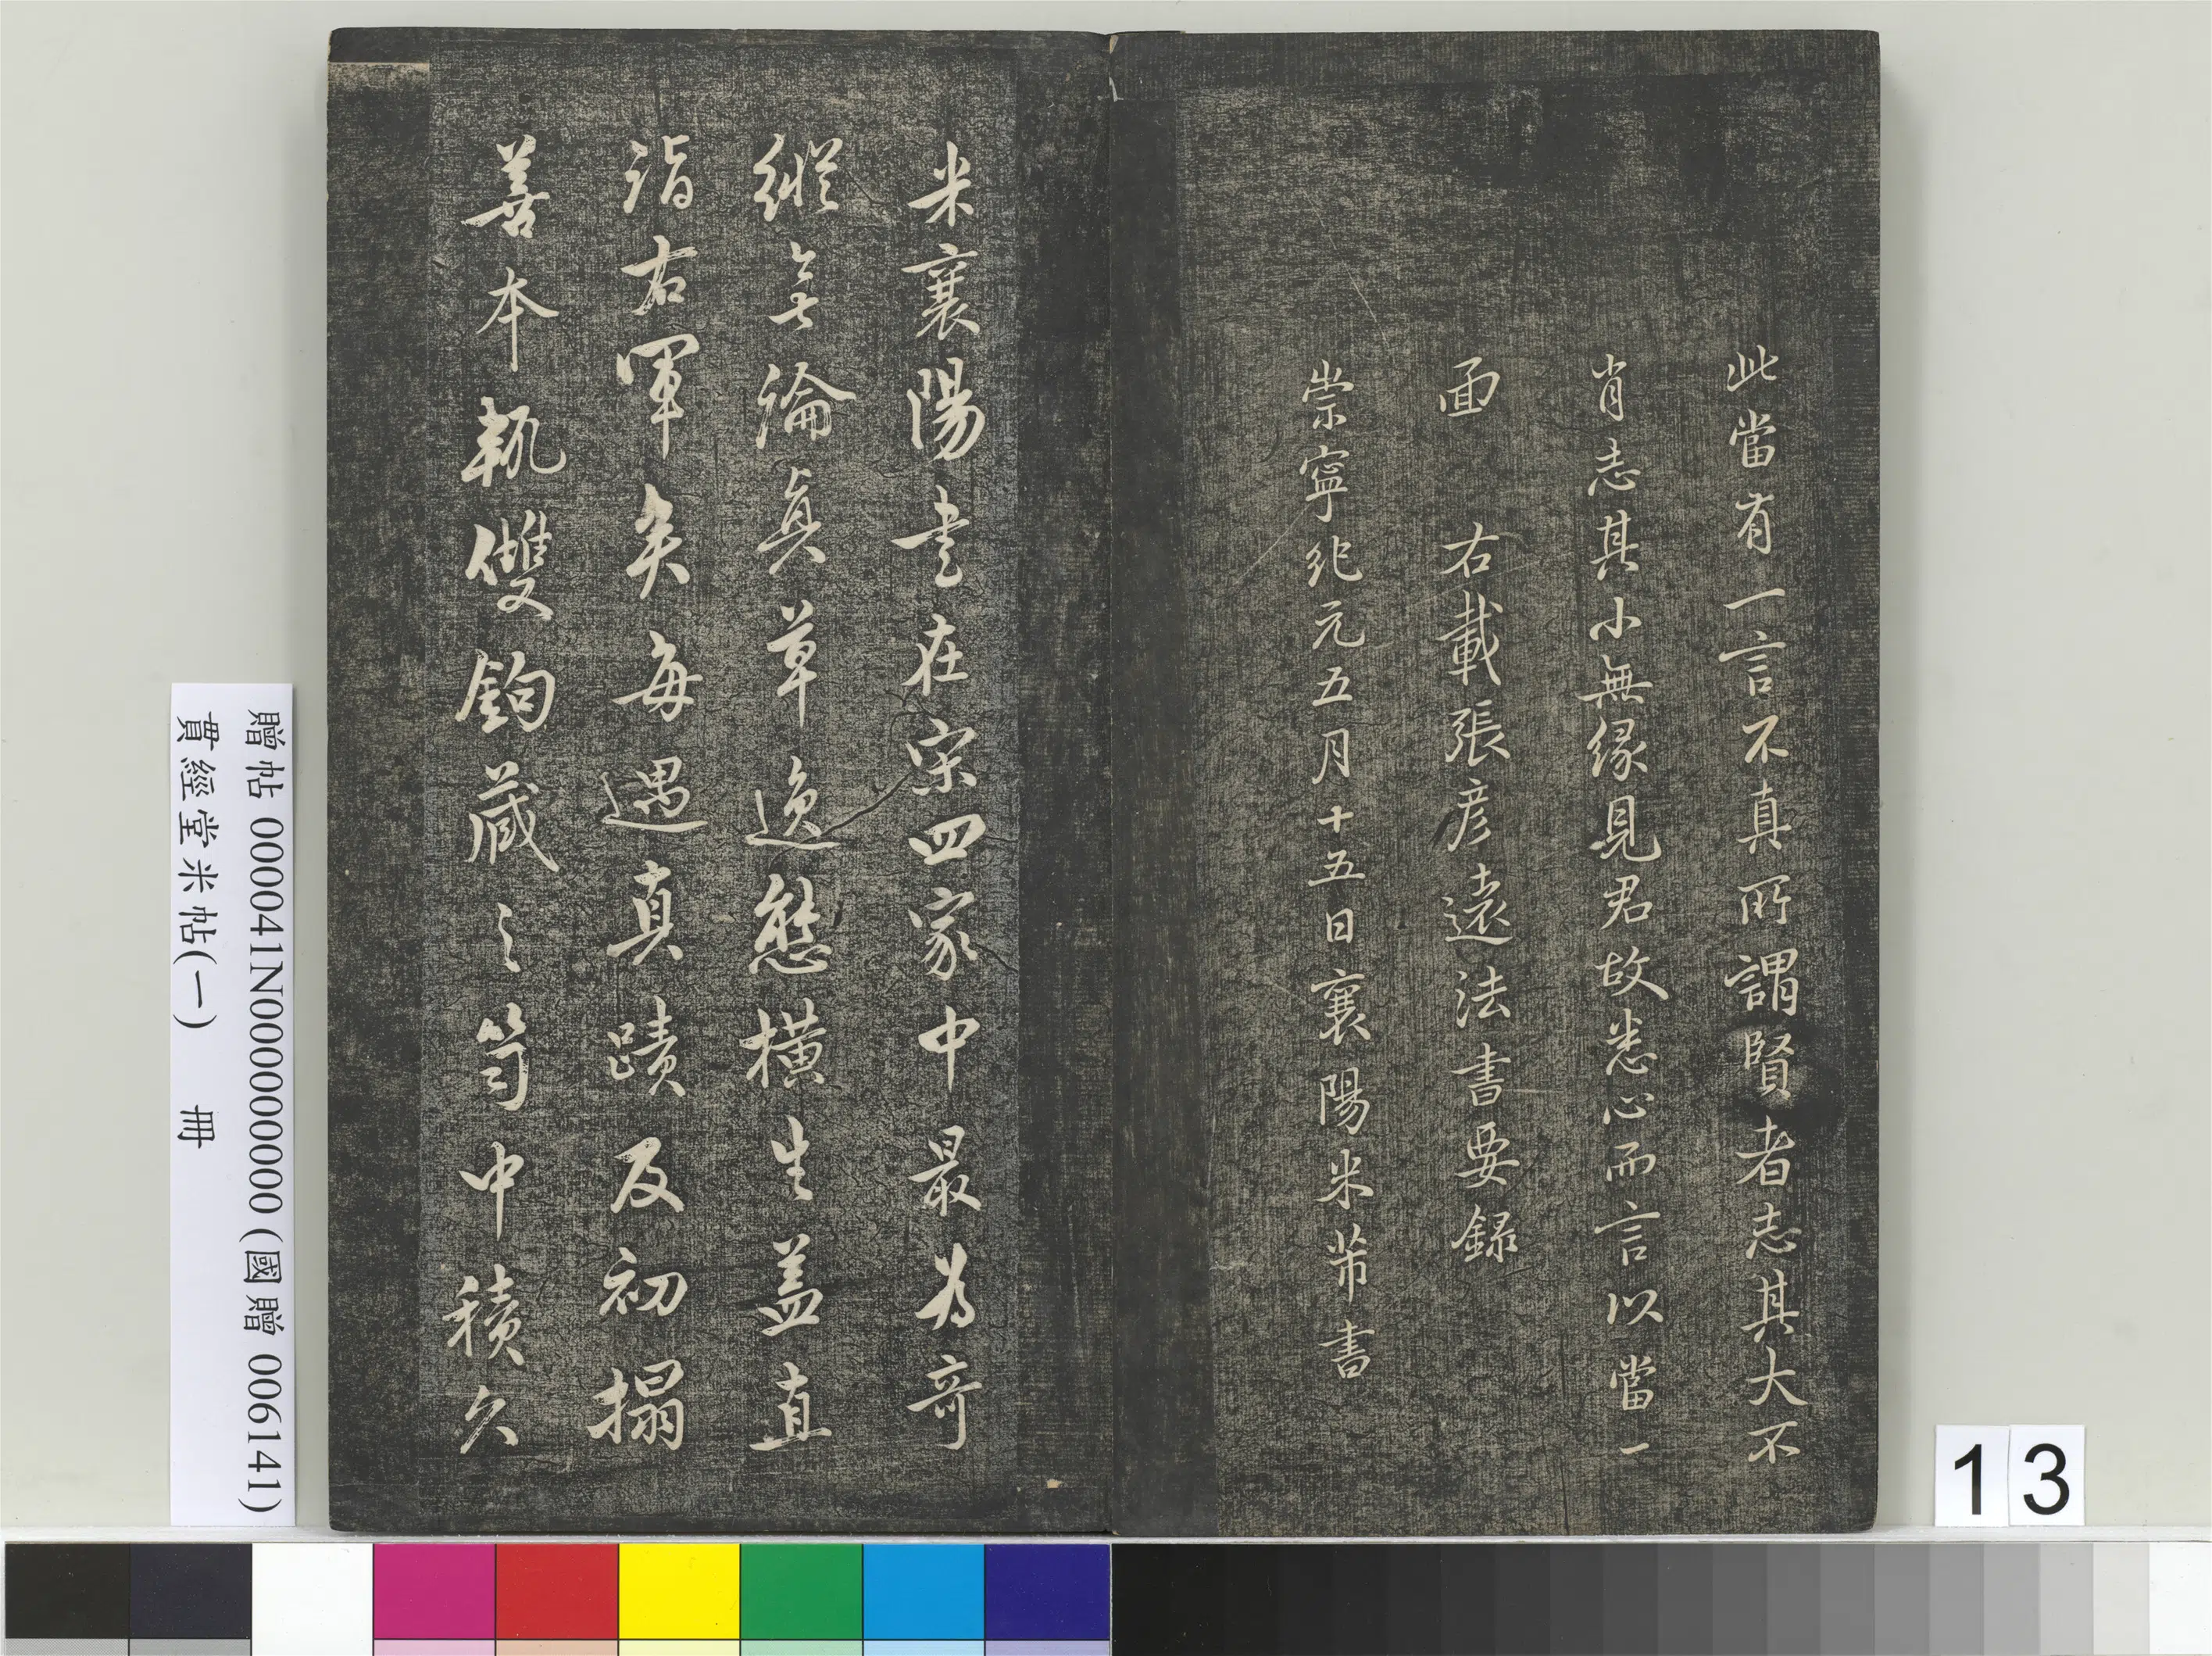 此當有一言不真所謂賢者志其大不
肖志其小無緣見君故悉心而言以當一
面　右載張彥遠法書要錄
崇寧化元五月十五日襄陽米芾書
米襄陽書在宋四家中最為奇
縱無論真草逸態橫生蓋直
詣右軍矣每遇真蹟及初搨
善本執雙鉤藏之笥中積久
贈帖 000041N000000000 (國贈 006141)
貫經堂米帖(一)　冊
13